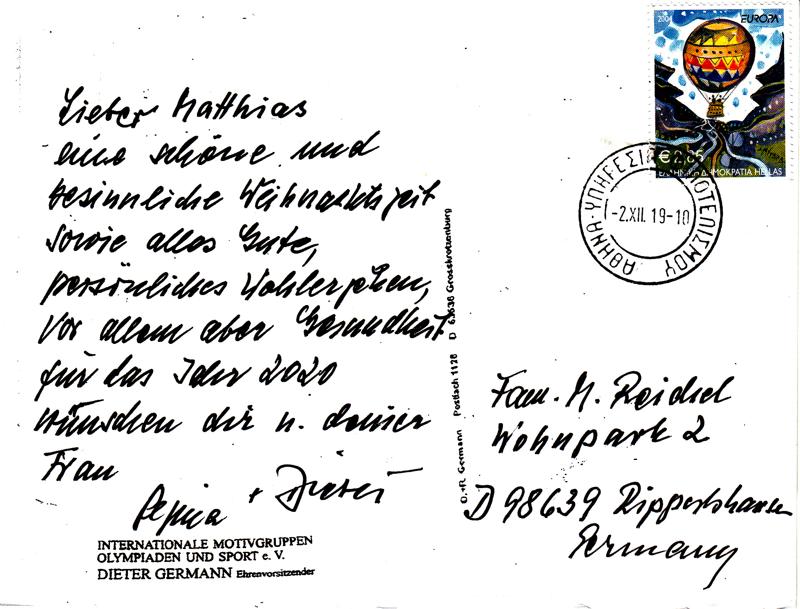 Lieber Matthias
eine schöne und
besinnliche Weihnachtszeit
sowie alles Gute,
persönliches Wohlergehen,
vor allem aber Gesundheit
für das Jahr 2020
wünschen dir u. deiner
Frau
+ Dieter
INTERNATIONALE MOTIVGRUPPEN
OLYMPIADEN UND SPORT e. V.
DIETER GERMANN Ehrenvorsitzender
D.+R. Germann Postfach 1128 D 63538 Grosskrotzenburg
2004 EUROPA
€2,85
ΕΛΛΗΝΙΚΗ ΔΗΜΟΚΡΑΤΙΑ HELLAS
ΑΘΗΝΑ·ΥΠΗΡΕΣΙΑ ΦΙΛΟΤΕΛΙΣΜΟΥ
-2.XII. 19-10
Fam. M. Reichel
Wohnpark 2
D 98639 Rippershausen
Germany